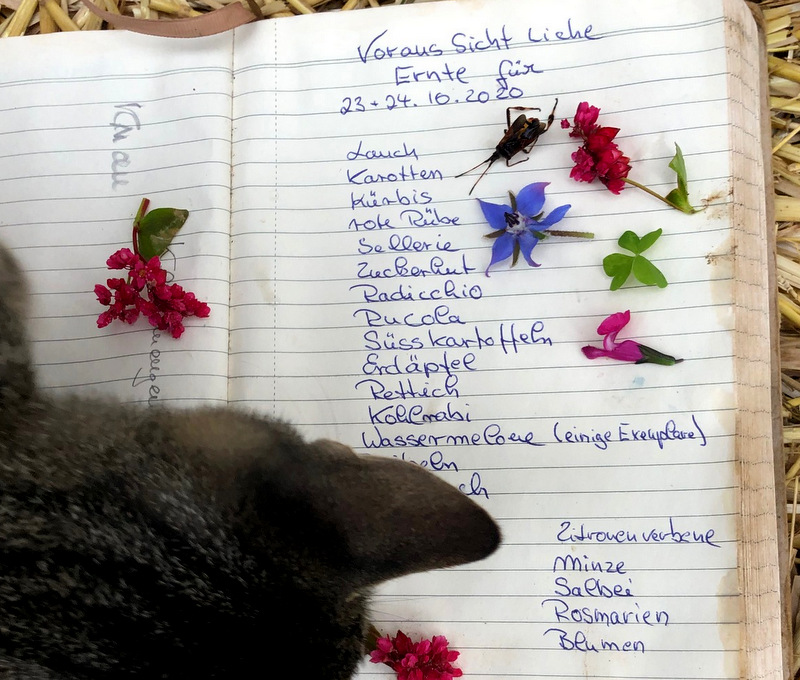 Voraus Sicht Liche
Ernte für
23+24.10.2020
Lauch
Karotten
Kürbis
rote Rübe
Sellerie
Zuckerhut
Radicchio
Rucola
Süsskartoffeln
Erdäpfel
Rettich
Kohlrabi
Wassermelone (einige Exemplare)
Zitronenverbene
Minze
Salbei
Rosmarien
Blumen